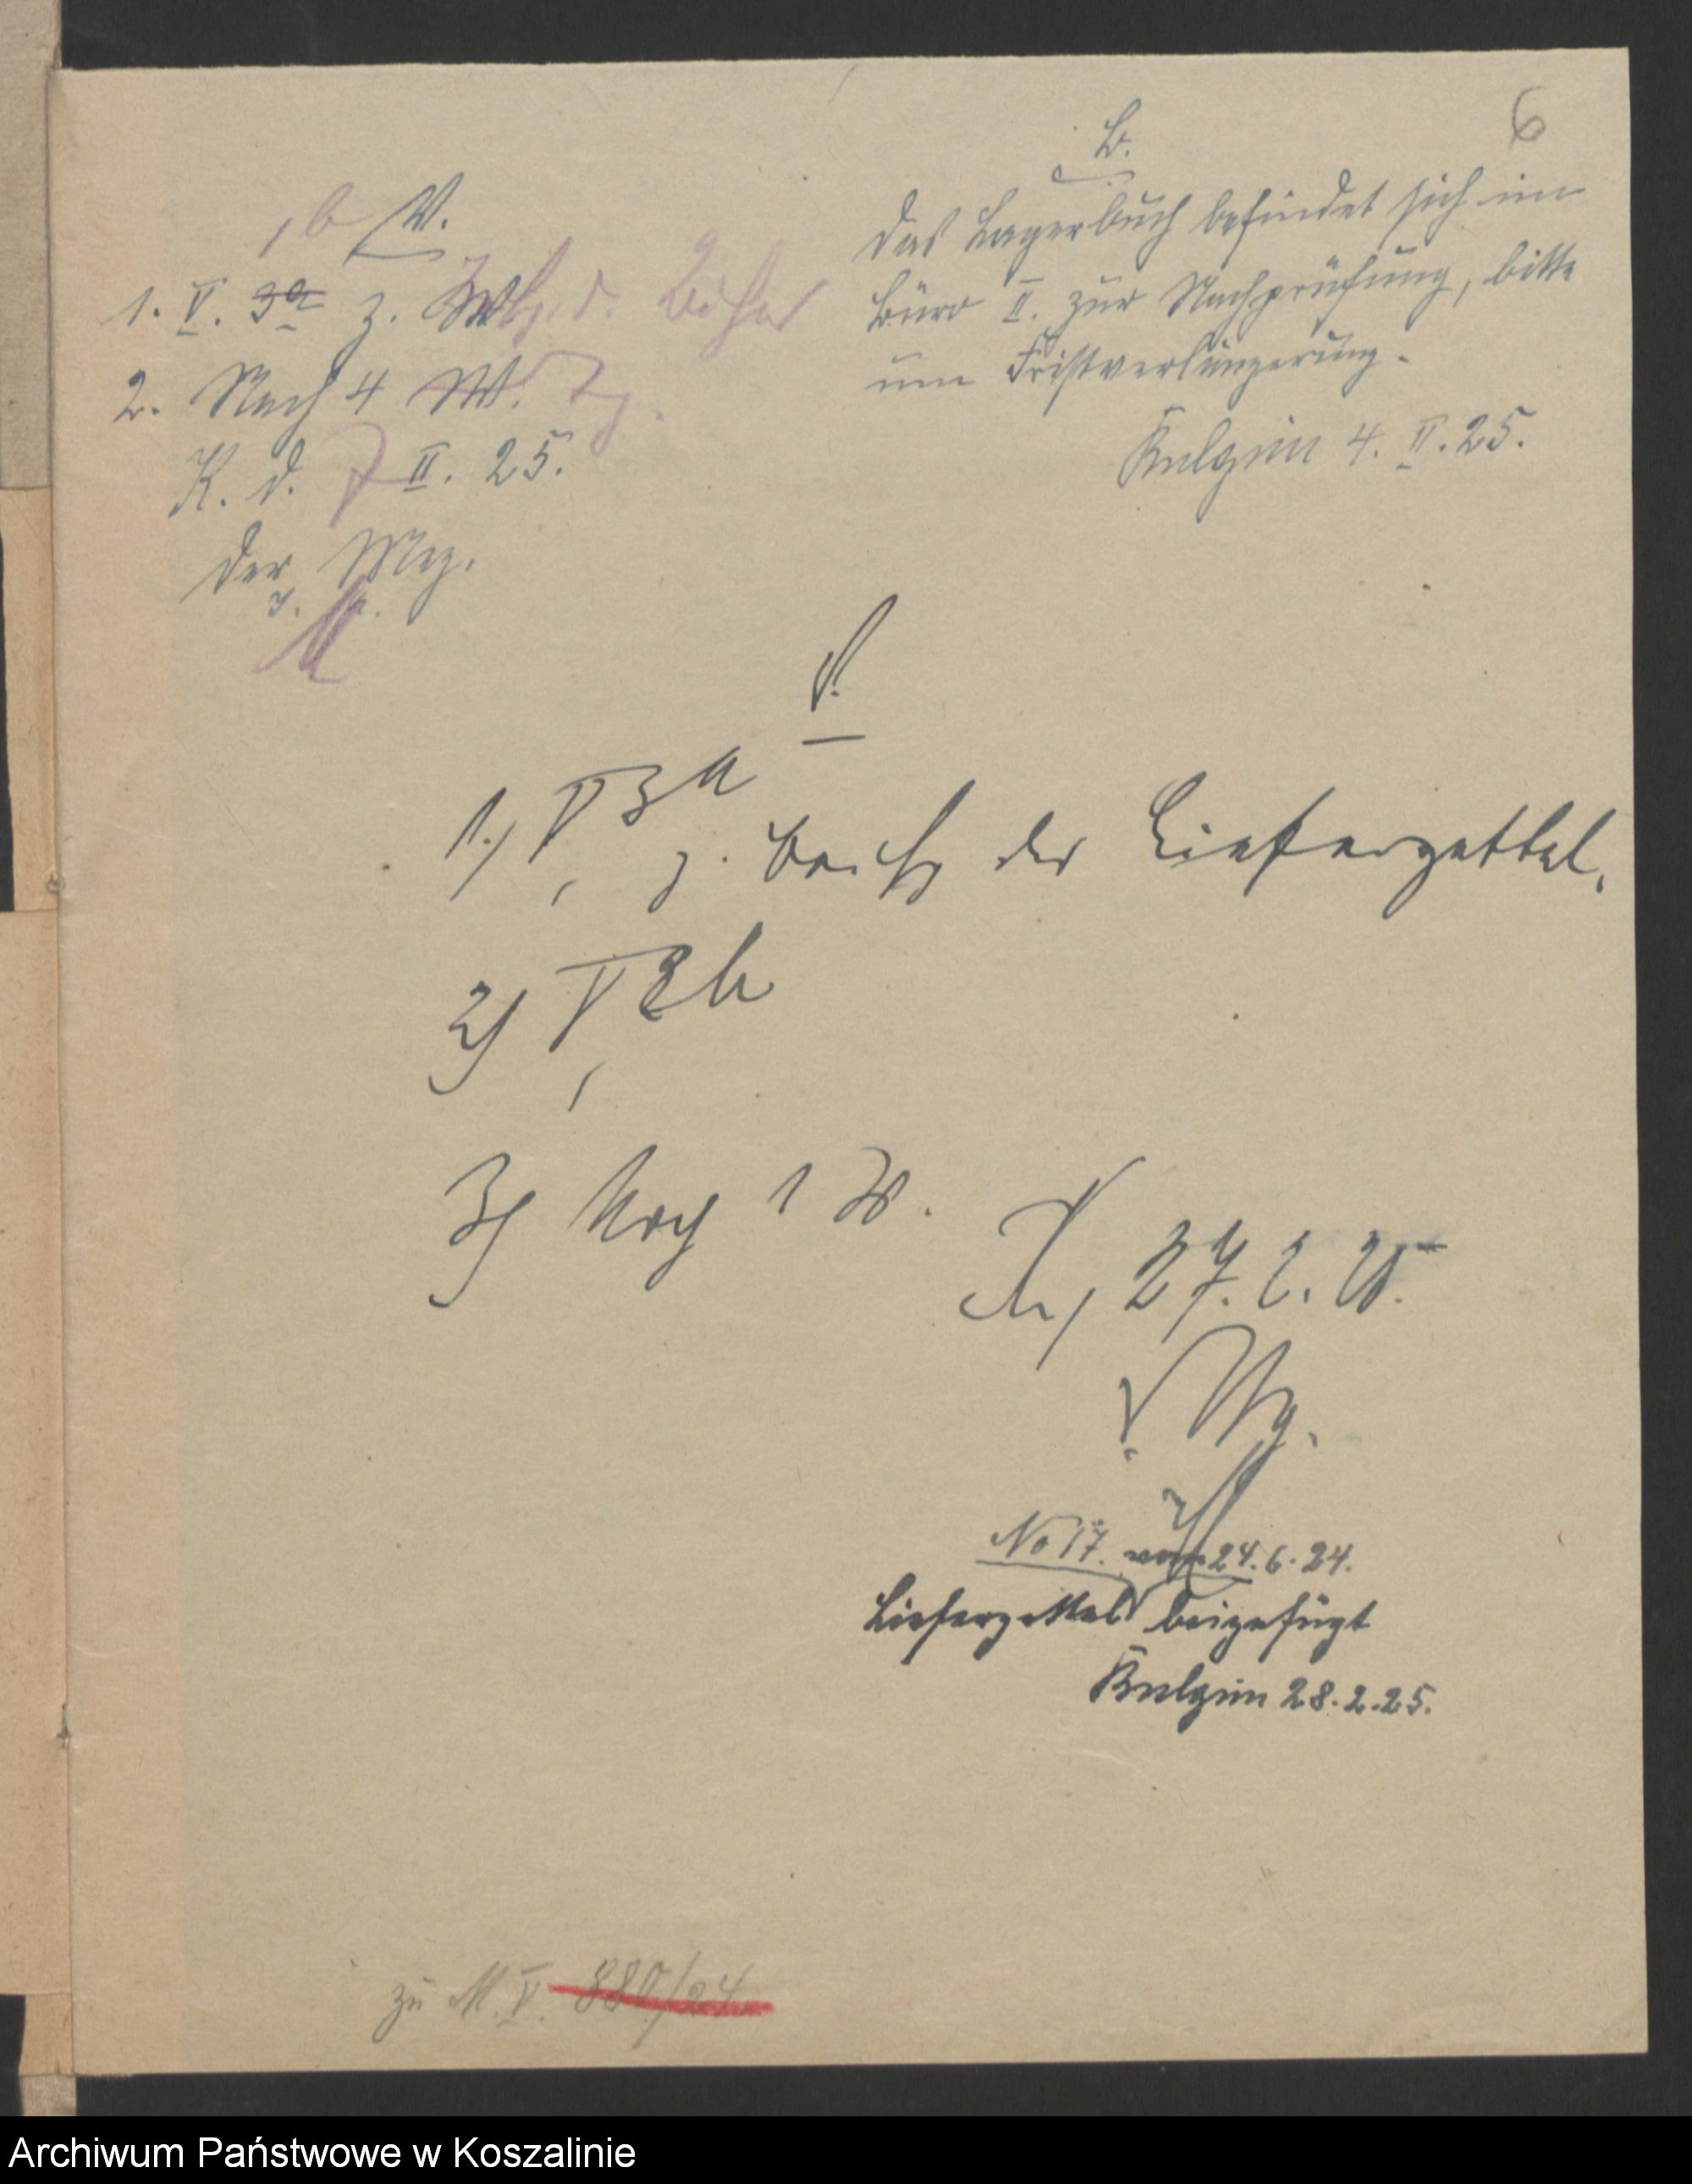 6
B.
Das Lagerbuch befindet sich im
Büro II. zur Nachprüfung, bitte
um Fristverlängerung.
4. II. 25.
1b V.
1. V. 3a z.
2. Nach 4 W.
K. d. 7 II. 25.
Der Mag.
J. A.
V.
1.) V 3a
z. der Lieferzettel.
2) V 2b
3) Nach 1 W.
27. 2. 25.
D. Mg.
No 17. vom 24. 6. 24.
Lieferzettel beigefügt
28. 2. 25.
zu M. V. 880/24
Archiwum Państwowe w Koszalinie